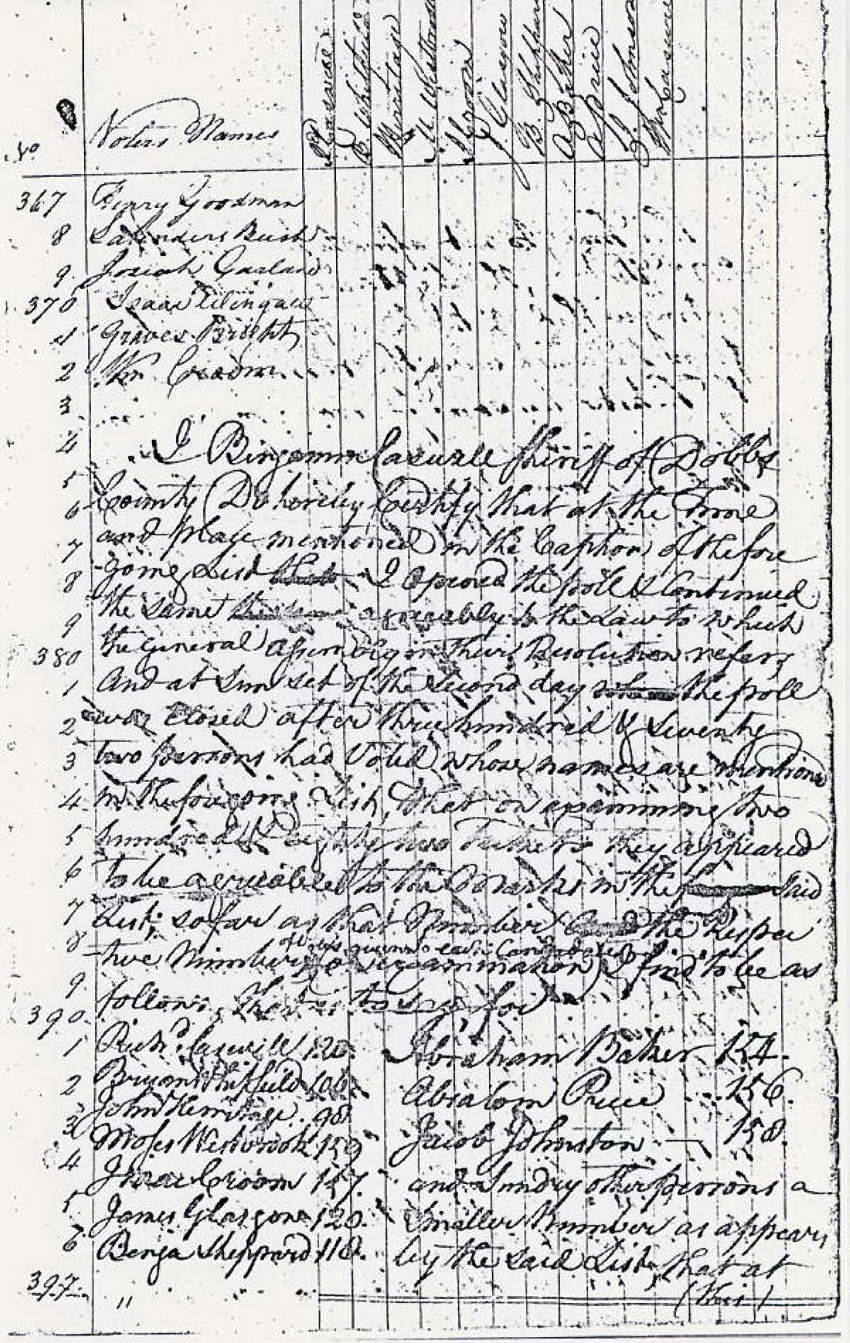 No
Voters Names
R Caswell
B Whitfield
Hermitage
M Westbrook
I Croom
J Glasgow
B Sheppard
A Baker
A Price
J. Johnson
Wm Caswell
367 Henry Goodman
8 Saunders Bush
9 Josiah Garland
370 Isaac Wingate
1 Graves Bright
2 Wm Croom
3
4 I Benjamin Caswell Sheriff of Dobbs
5
6 County Do hereby Certify that at the Time
7 and place mentioned in the Caption of the fore
8 going List I opened the poll & Continued
9 the same agreeably to the Law to which
380 the General Assembly in their Resolution refers
1 And at Sun set of the second day the poll
2 was closed after three hundred & Seventy
3 two persons had Voted whose names are mentiond
4 in the foregoing List, that on examining two
5 hundred & eighty two Tickets they appeared
6 to be agreeable to the Marks in the said
7 List, so far as that Number & the Respec
8 of votes given to each Candidate
tive Numbers on examination I find to be as
9
390 follows, That is to say for
1 Richd. Caswell 120. Abraham Baker 154.
2 Bryan Whitfield 106 Absalom Price 156.
3 John Hermitage 98 Jacob Johnston 158.
Moses Westbrook 159
4 Isaac Croom 157. and Sundry other persons a
5 James Glasgow 120. Smaller Number as appears
6 Benja Sheppard 118. by the said List, that at
397 " (this)